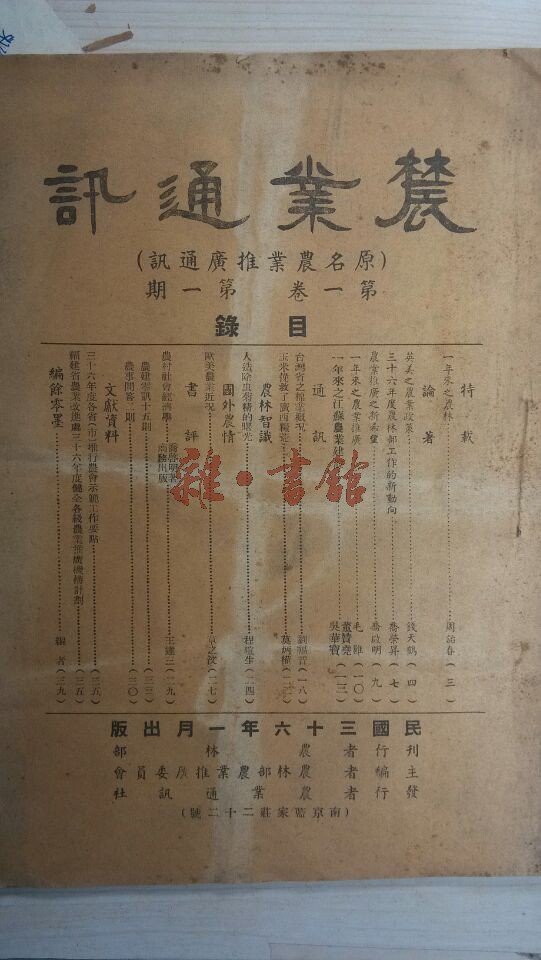 農業通訊
(原名農業推廣通訊)
第一卷 第一期
目錄
特載
一年來之農林……周詒春(三)
論著
英美之農業政策……錢天鶴(四)
三十六年度農林部工作的新動向……喬榮昇(七)
農業推廣之新希望……喬啟明(九)
一年來之農業推廣……毛雝(一〇)
一年來之江蘇農業建……董贊堯 吳華寶(一三)
通訊
台灣省之棉業概況……劉(一八)
玉米撞救了廣西糧荒……莫炳權(二二)
農林智識
人造除虫菊精的曙光……程暄生(二四)
國外農情
歐美農業近況……之汶(二七)
書評
農村社會經濟學 喬啟明著 商務出版……王達三(二九)
農建零訊十五則……(三三)
農事問答二則……(三〇)
文獻資料
三十六年度各省(市)推行農會示範工作要點……(三五)
福建省農業改進處三十六年度健全各級農業推廣機構計劃……(三五)
編餘零墨……編者(三九)
民國三十六年一月出版
刊行者 農林部
主編者 農林部農業推廣委員會
發行者 農業通訊社
(南京藍家莊二十二號)
雜·書館